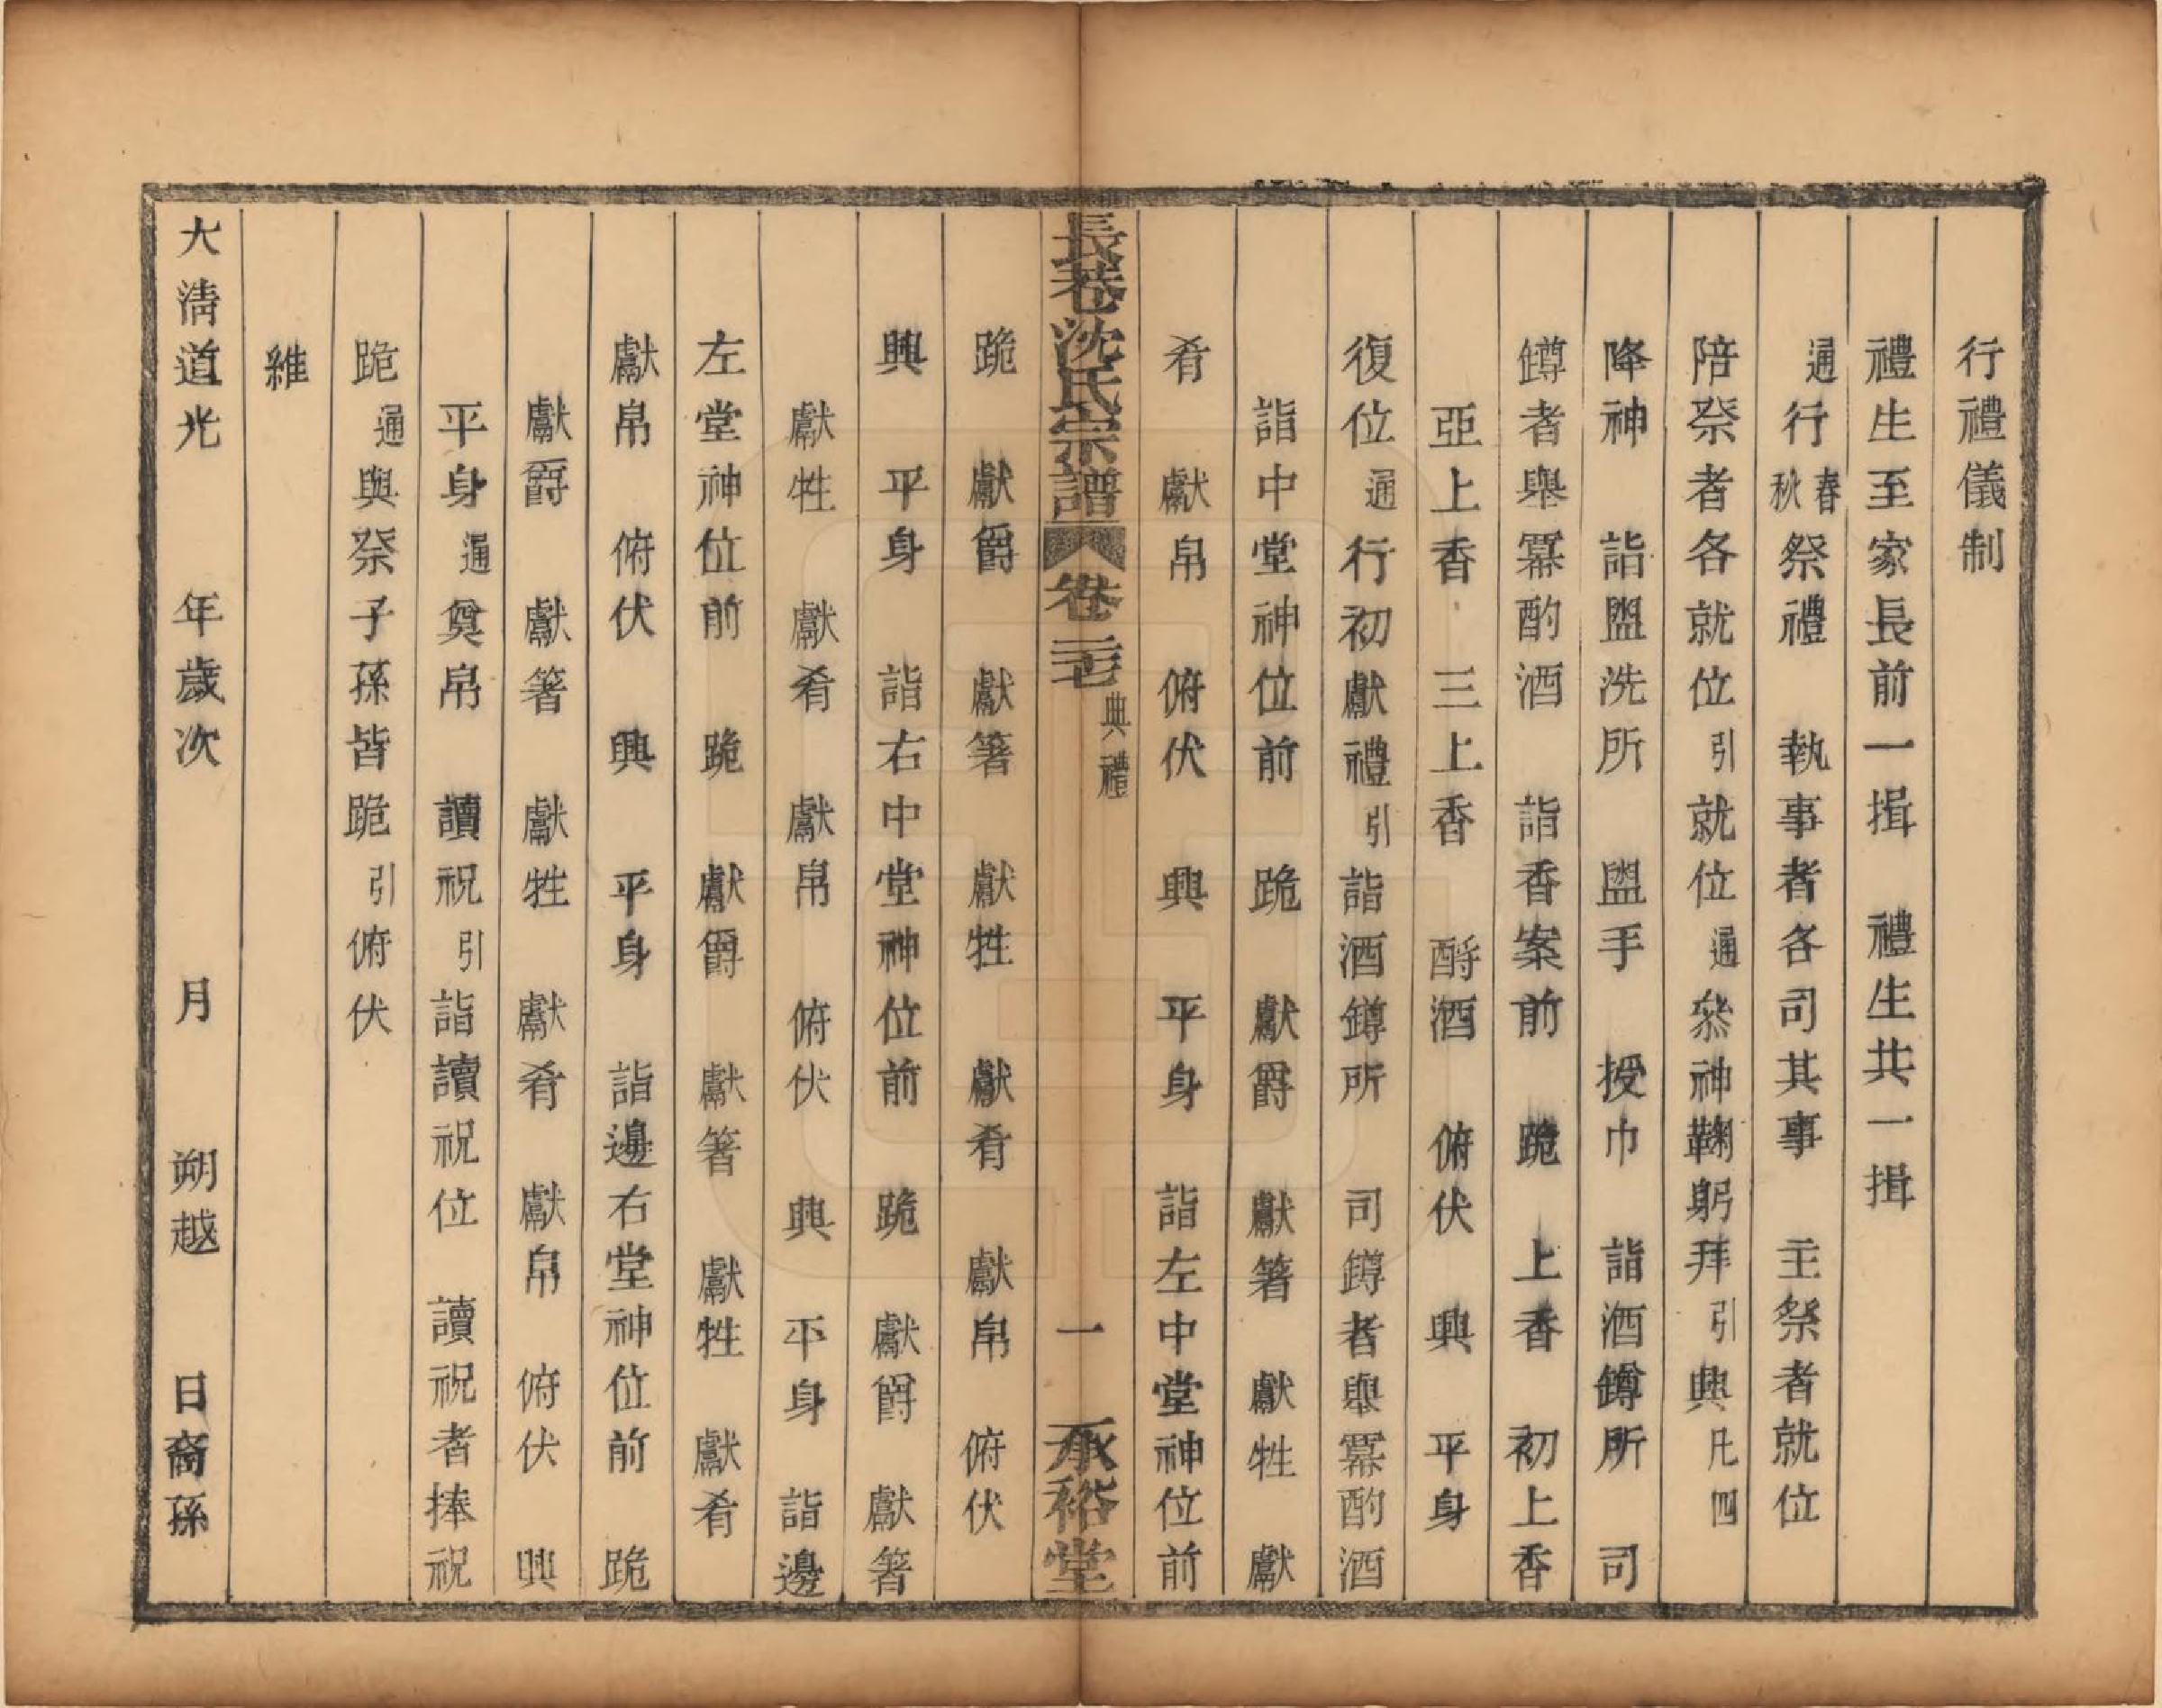 行禮儀制
禮生至家長前一揖　禮生共一揖
通行春秋祭禮　執事者各司其事　主祭者就位
陪祭者各就位引就位通叅神鞠躬拜引興凡四
降神　詣盥洗所　盥手　授巾　詣酒鐏所　司
鐏者舉冪酌酒　詣香案前　跪　上香　初上香
亞上香　三上香　酹酒　俯伏　興　平身
復位通行初獻禮引詣酒鐏所　司鐏者舉冪酌酒
詣中堂神位前　跪　獻爵　獻箸　獻牲　獻
肴　獻帛　俯伏　興　平身　詣左中堂神位前
長巷沈氏宗譜　卷三十七　典禮　一　承裕堂
跪　獻爵　獻箸　獻牲　獻肴　獻帛　俯伏
興　平身　詣右中堂神位前　跪　獻爵　獻箸
獻牲　獻肴　獻帛　俯伏　興　平身　詣邊
左堂神位前　跪　獻爵　獻箸　獻牲　獻肴
獻帛　俯伏　興　平身　詣邊右堂神位前　跪
獻爵　獻箸　獻牲　獻肴　獻帛　俯伏　興
平身通奠帛　讀祝引詣讀祝位　讀祝者捧祝
跪通與祭子孫皆跪引俯伏
維
大清道光　年歲次　月　朔越　日裔孫